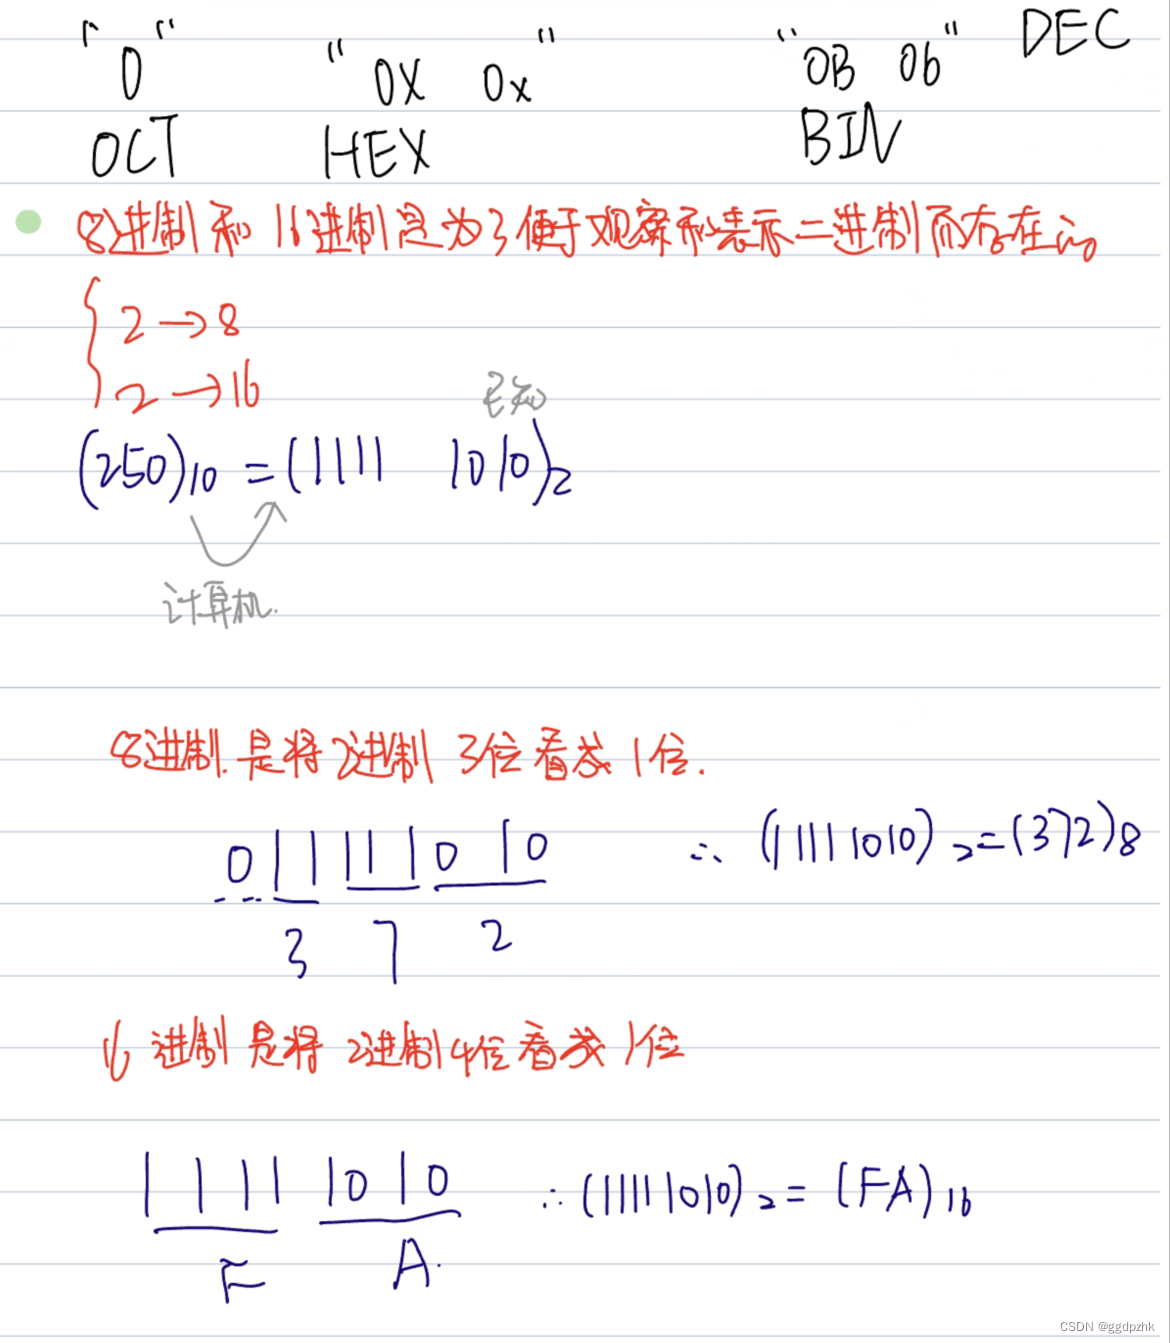 "0" "0X 0x" "0B 0b" DEC
OCT HEX BIN
8进制和16进制是为了便于观察和表示二进制而存在的
2→8
2→16
已知
(250)10 = (1111 1010)2
计算机.
8进制.是将2进制 3位看成1位.
011111010 ∴ (11111010)2=(372)8
3 7 2
16进制是将 2进制4位看成1位
1111 1010 ∴(11111010)2 = (FA)16
F A.
CSDN @ggdpzhk